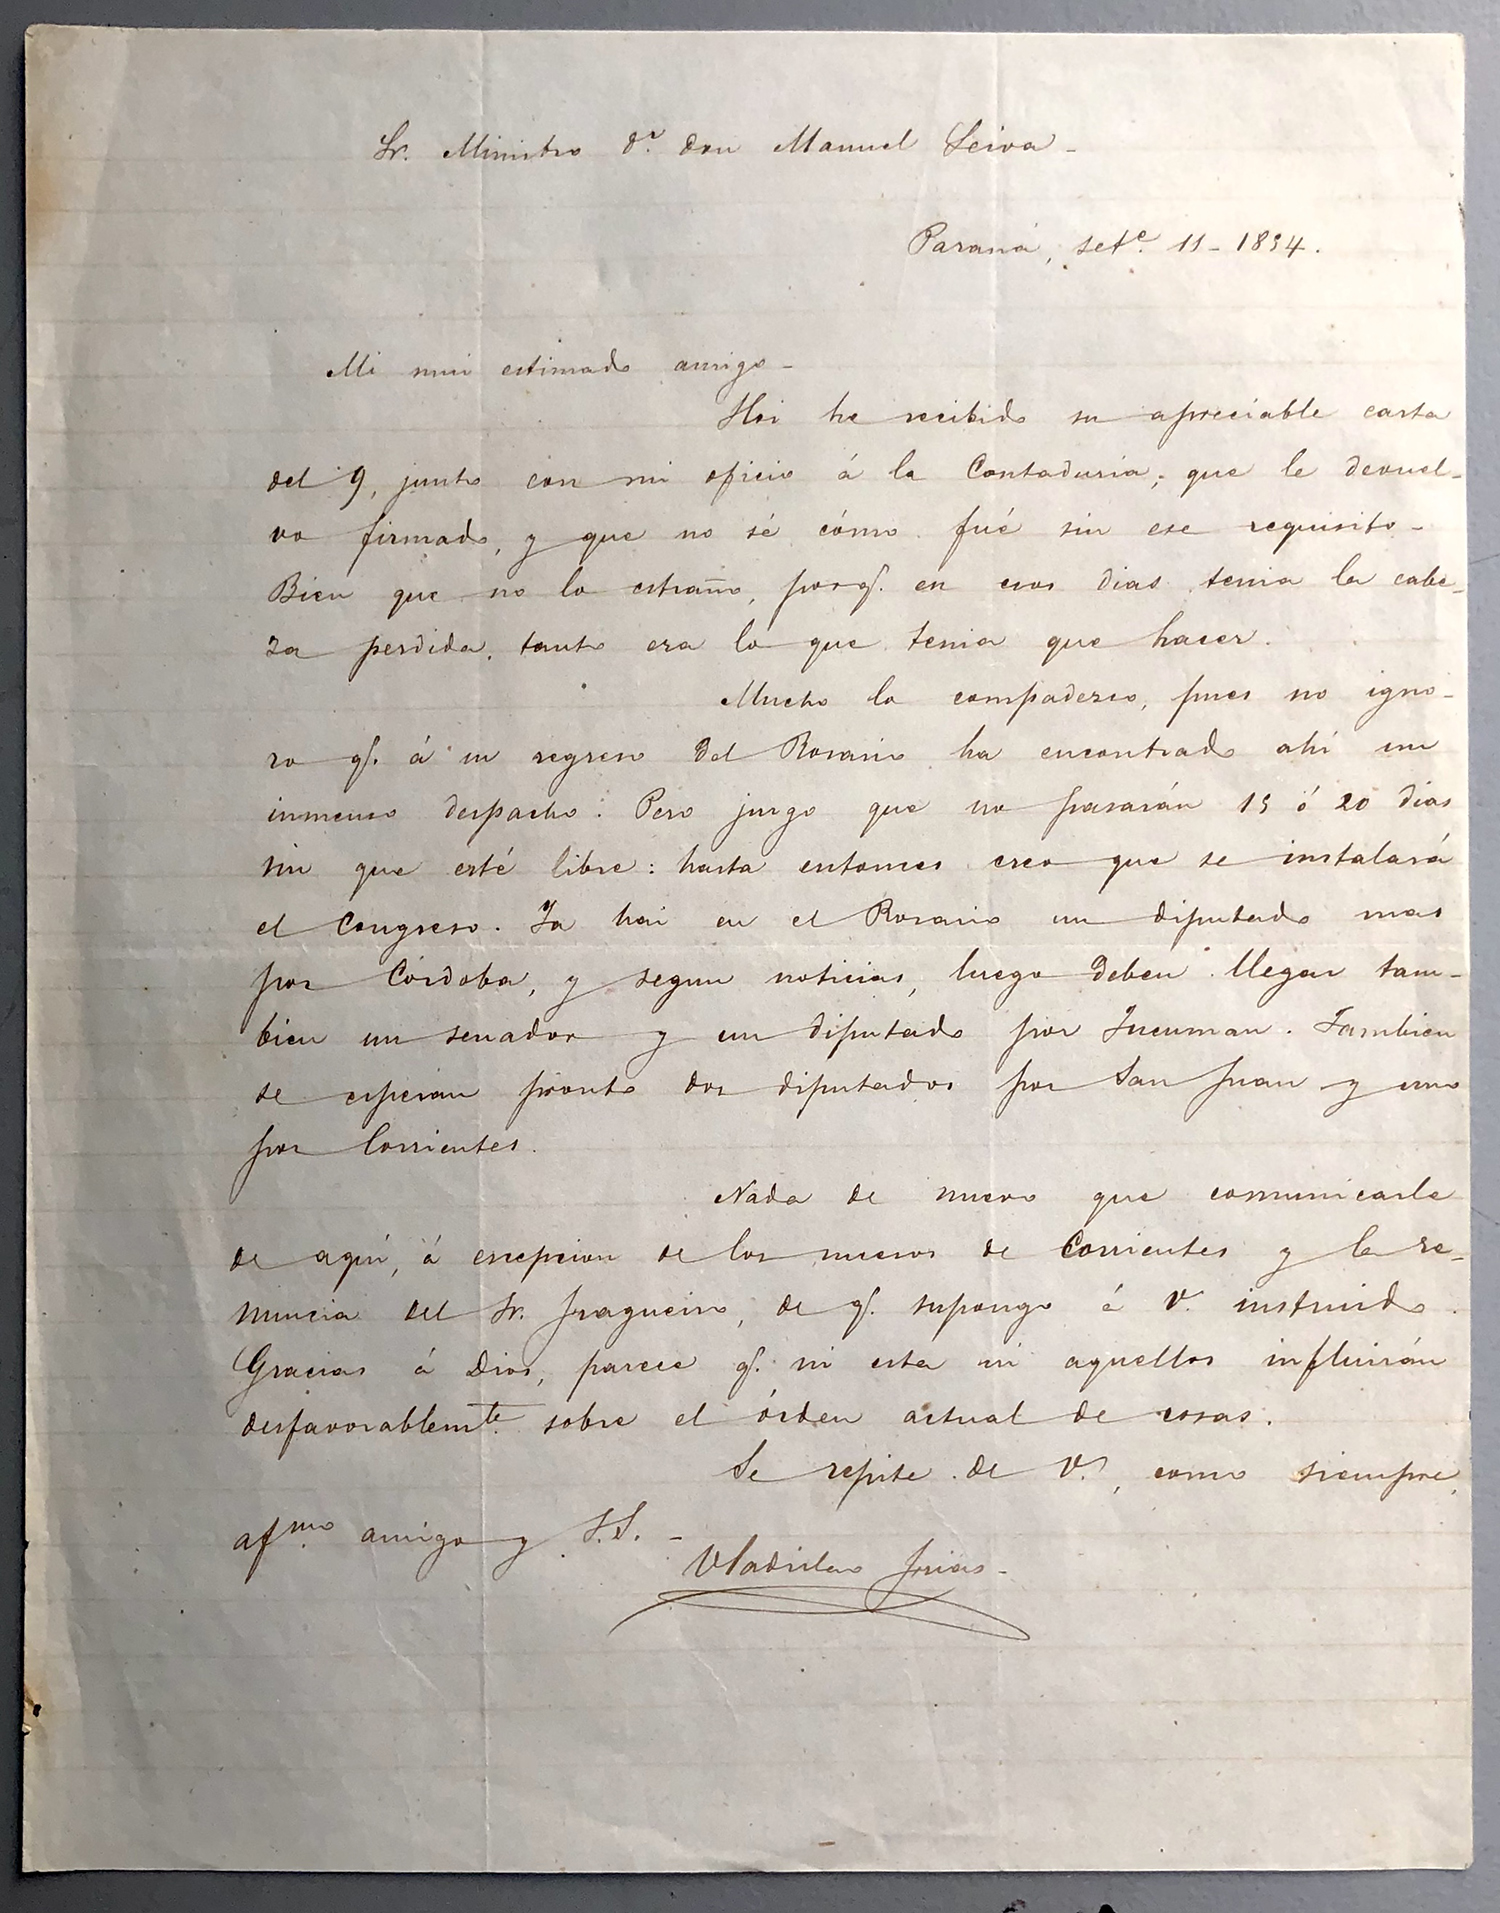 Sr. Ministro Dr. don Manuel Leiva -
Paraná, sete. 11 - 1854.
Mi mui estimado amigo -
Hoi he recibido su apreciable carta
del 9, junto con mi oficio á la Contaduria, que le devuel-
vo firmado, y que no sé cómo fué sin ese requisito -
Bien que no lo estraño, porq. en esos dias tenia la cabe-
za perdida, tanto era lo que tenia que hacer.
Mucho lo compadezco, pues no igno-
ro q. á su regreso del Rosario ha encontrado ahi un
inmenso despacho. Pero juzgo que no pasarán 15 ó 20 dias
sin que esté libre: hasta entonces creo que se instalará
el Congreso. Ya hai en el Rosario un diputado mas
por Córdoba, y segun noticias, luego deben llegar tam-
bien un senador y un diputado por Tucuman. Tambien
se esperan pronto dos diputados por San Juan y uno
por Corrientes.
Nada de nuevo que comunicarle
de aquí, á escepcion de los sucesos de Corrientes y la re-
nuncia del Sr. Fragueiro, de q. supongo á V. instruido.
Gracias á Dios, parece q. ni esta ni aquellos influirán
desfavorablemte. sobre el órden actual de cosas.
Se repite de V., como siempre,
afmo. amigo y S.S. -
Vladislao Frias -